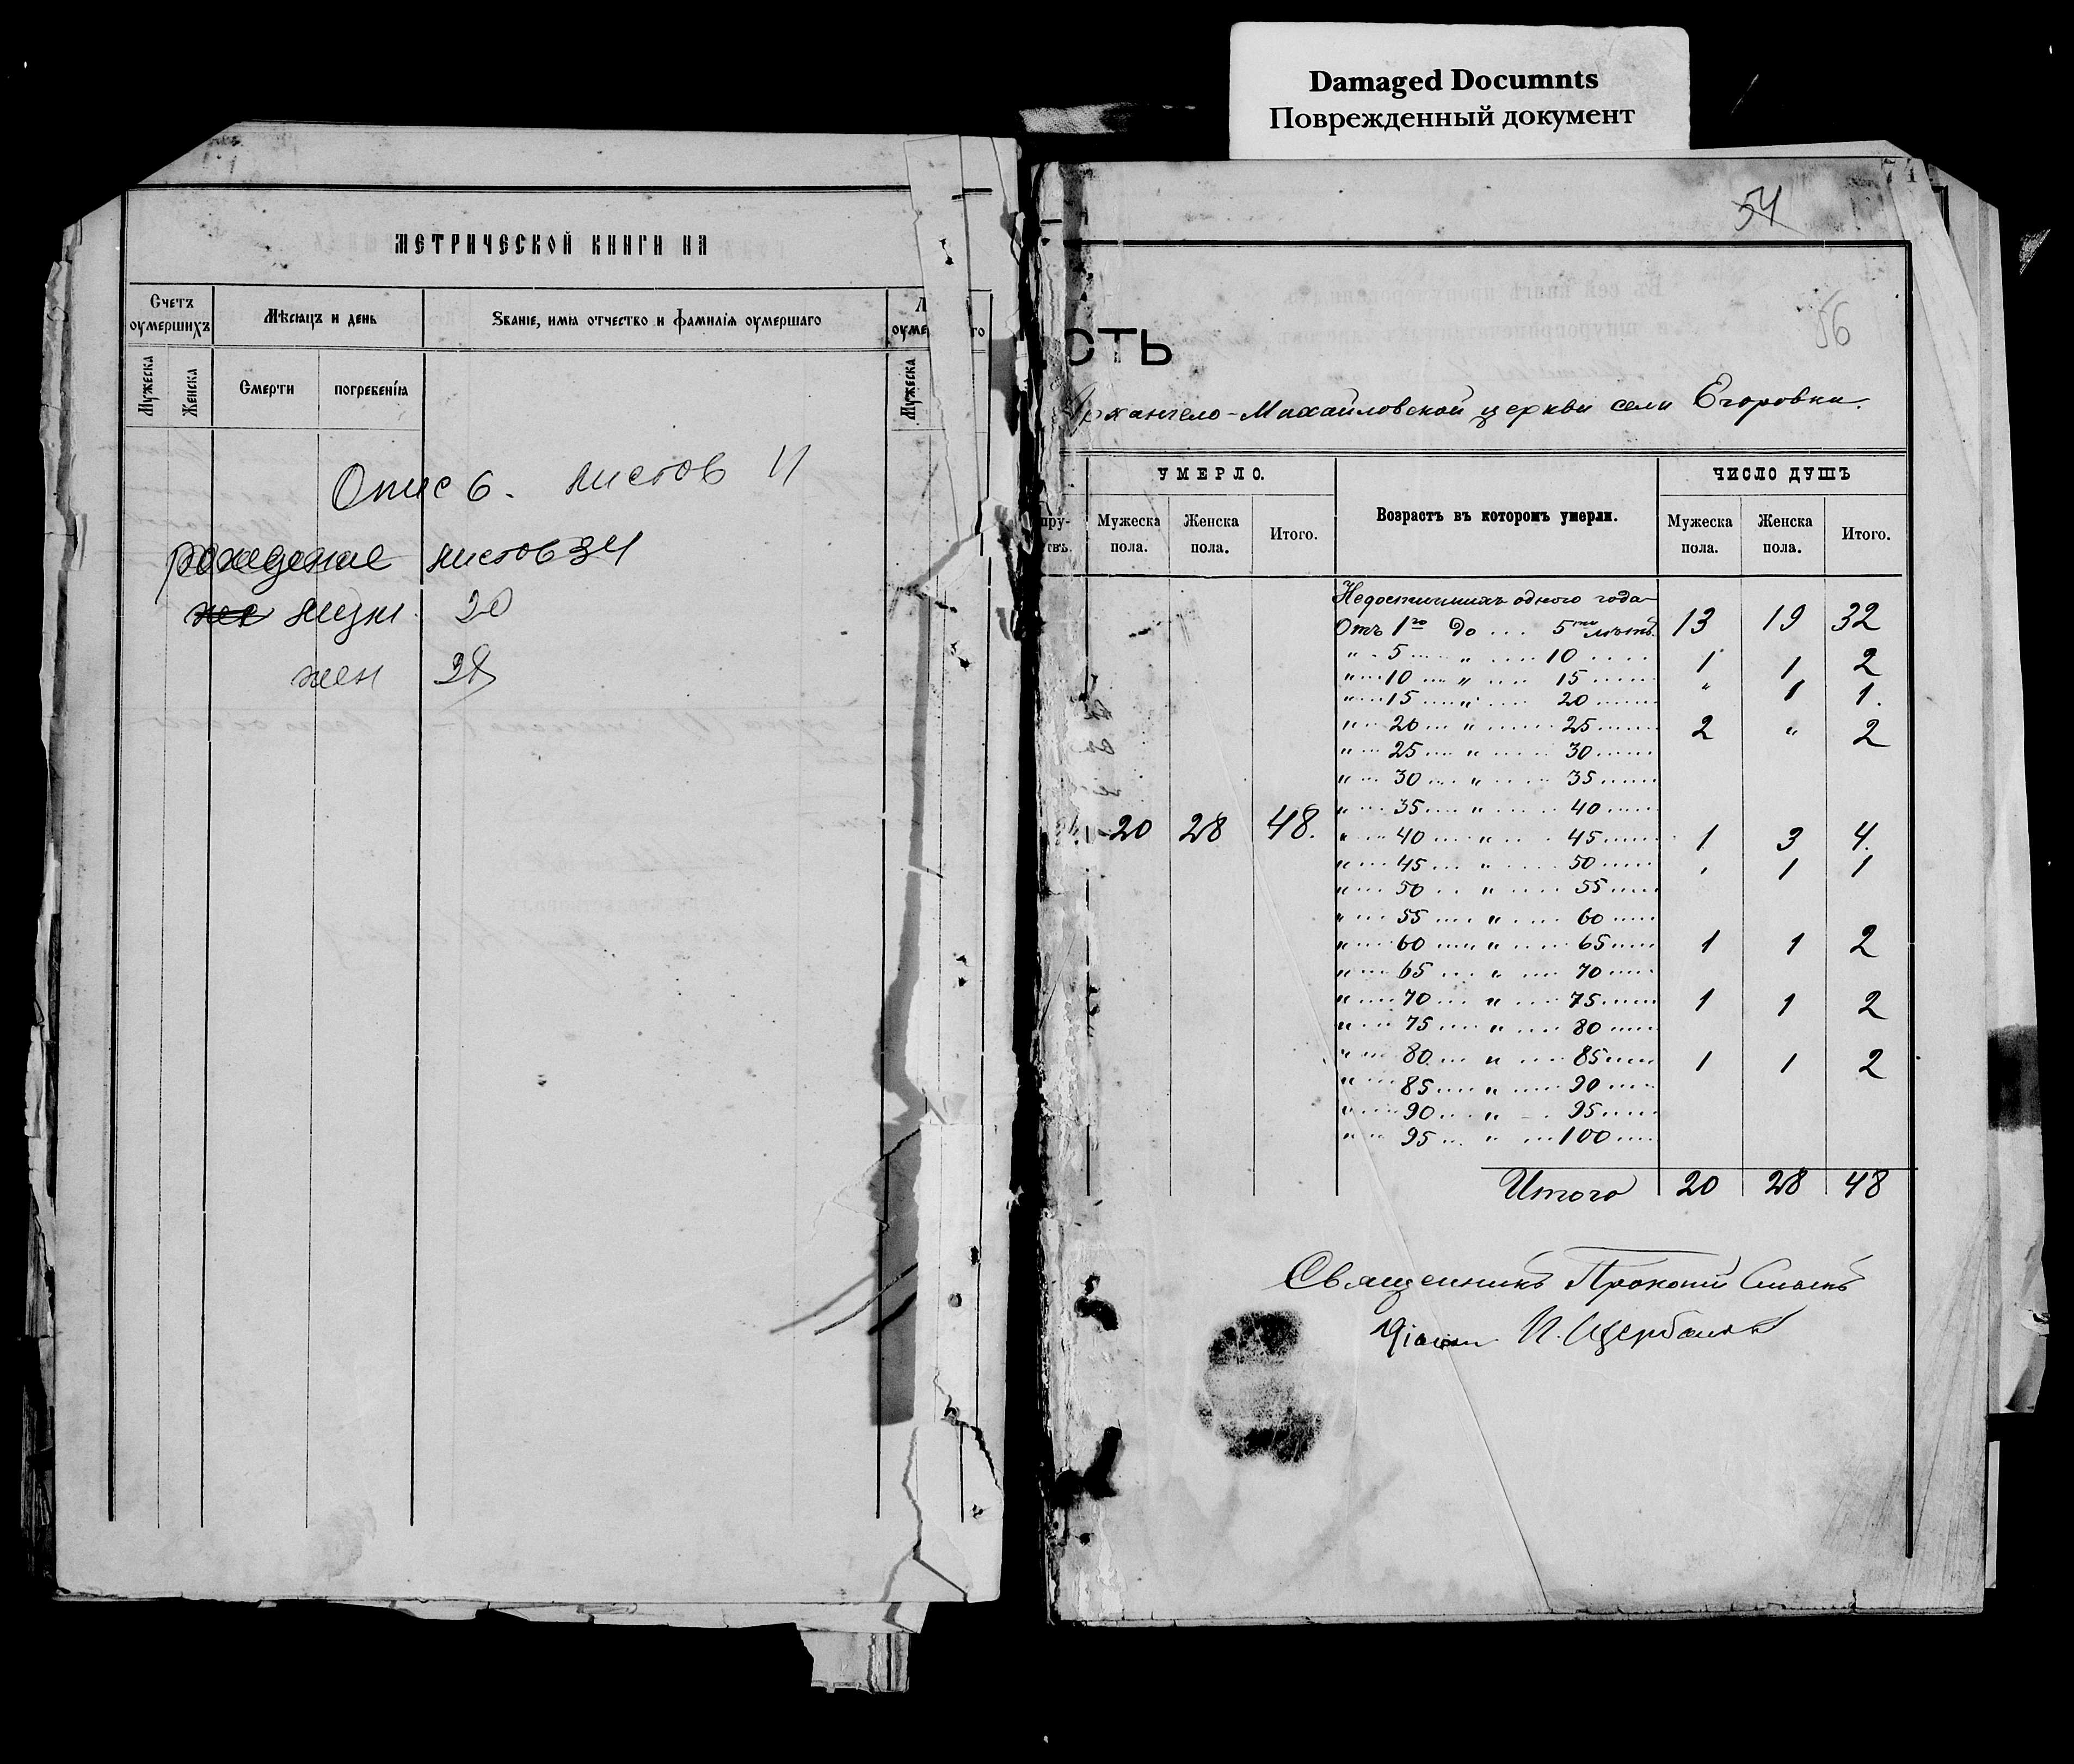 Damaged Documnts
Поврежденный документ
МЕТРИЧЕСКОЙ КНИГИ НА
Счетъ оумершихъ
Мѣсяцъ и день
Званіе, имя отчество и фамилія оумершаго
оуме
го
Мужеска
Женска
Смерти
погребенія
Мужеска
Опис 6. листов 11
рождение листов 34
жен
20
жен 28
54
56
сть
Архангело-Михайловской церкви села Егоровки.
УМЕРЛО.
Возрастъ въ которомъ умерли.
ЧИСЛО ДУШЪ
Мужеска пола.
Женска пола.
Итого.
Мужеска пола.
Женска пола.
Итого.
Недостигшихъ одного года
Отъ 1го до ... 5ти лѣтъ. 13 19 32
" 5 " 10
1 1 2
" 10 " 15
" 15 " 20
" 1 1.
" 20 " 25 2 " 2
" 25 " 30
" 30 " 35
" 35 " 40
20 28 48.
" 40 " 45 1 3 4.
" 45 " 50 " 1 1
" 50 " 55
" 55 " 60
" 60 " 65 1 1 2
" 65 " 70
" 70 " 75 1 1 2
" 75 " 80
" 80 " 85 1 1 2
" 85 " 90
" 90 " 95
" 95 " 100
Итого 20 28 48
Священникъ Прокопій
И. Щербань